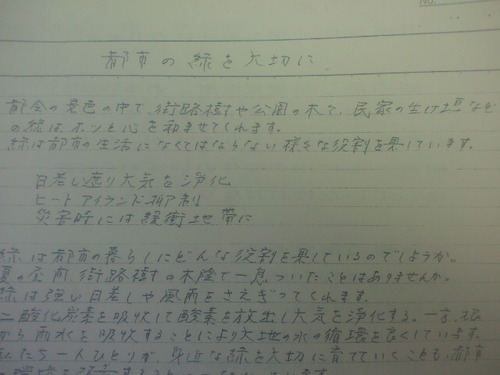 No.
都市の緑を大切に
都会の景色の中で、街路樹や公園の木々、民家の生け垣など
の緑は、ホッと心を和ませてくれます。
緑は都市の生活になくてはならない様々な役割を果しています。
日差し遮り大気を浄化
ヒートアイランド抑制
災害時には緩衝地帯に
緑は都市の暮らしにどんな役割を果しているのでしょうか。
夏の夜間、街路樹の木陰で一息ついたことはありませんか。
緑は強い日差しや風雨をさえぎってくれます。
二酸化炭素を吸収して酸素を放出し大気を浄化する。一方、根
から雨水を吸収することにより大地の水の循環を良くしています。
私たち一人ひとりが、身近な緑を大切に育てていくことも、都市
の環境を